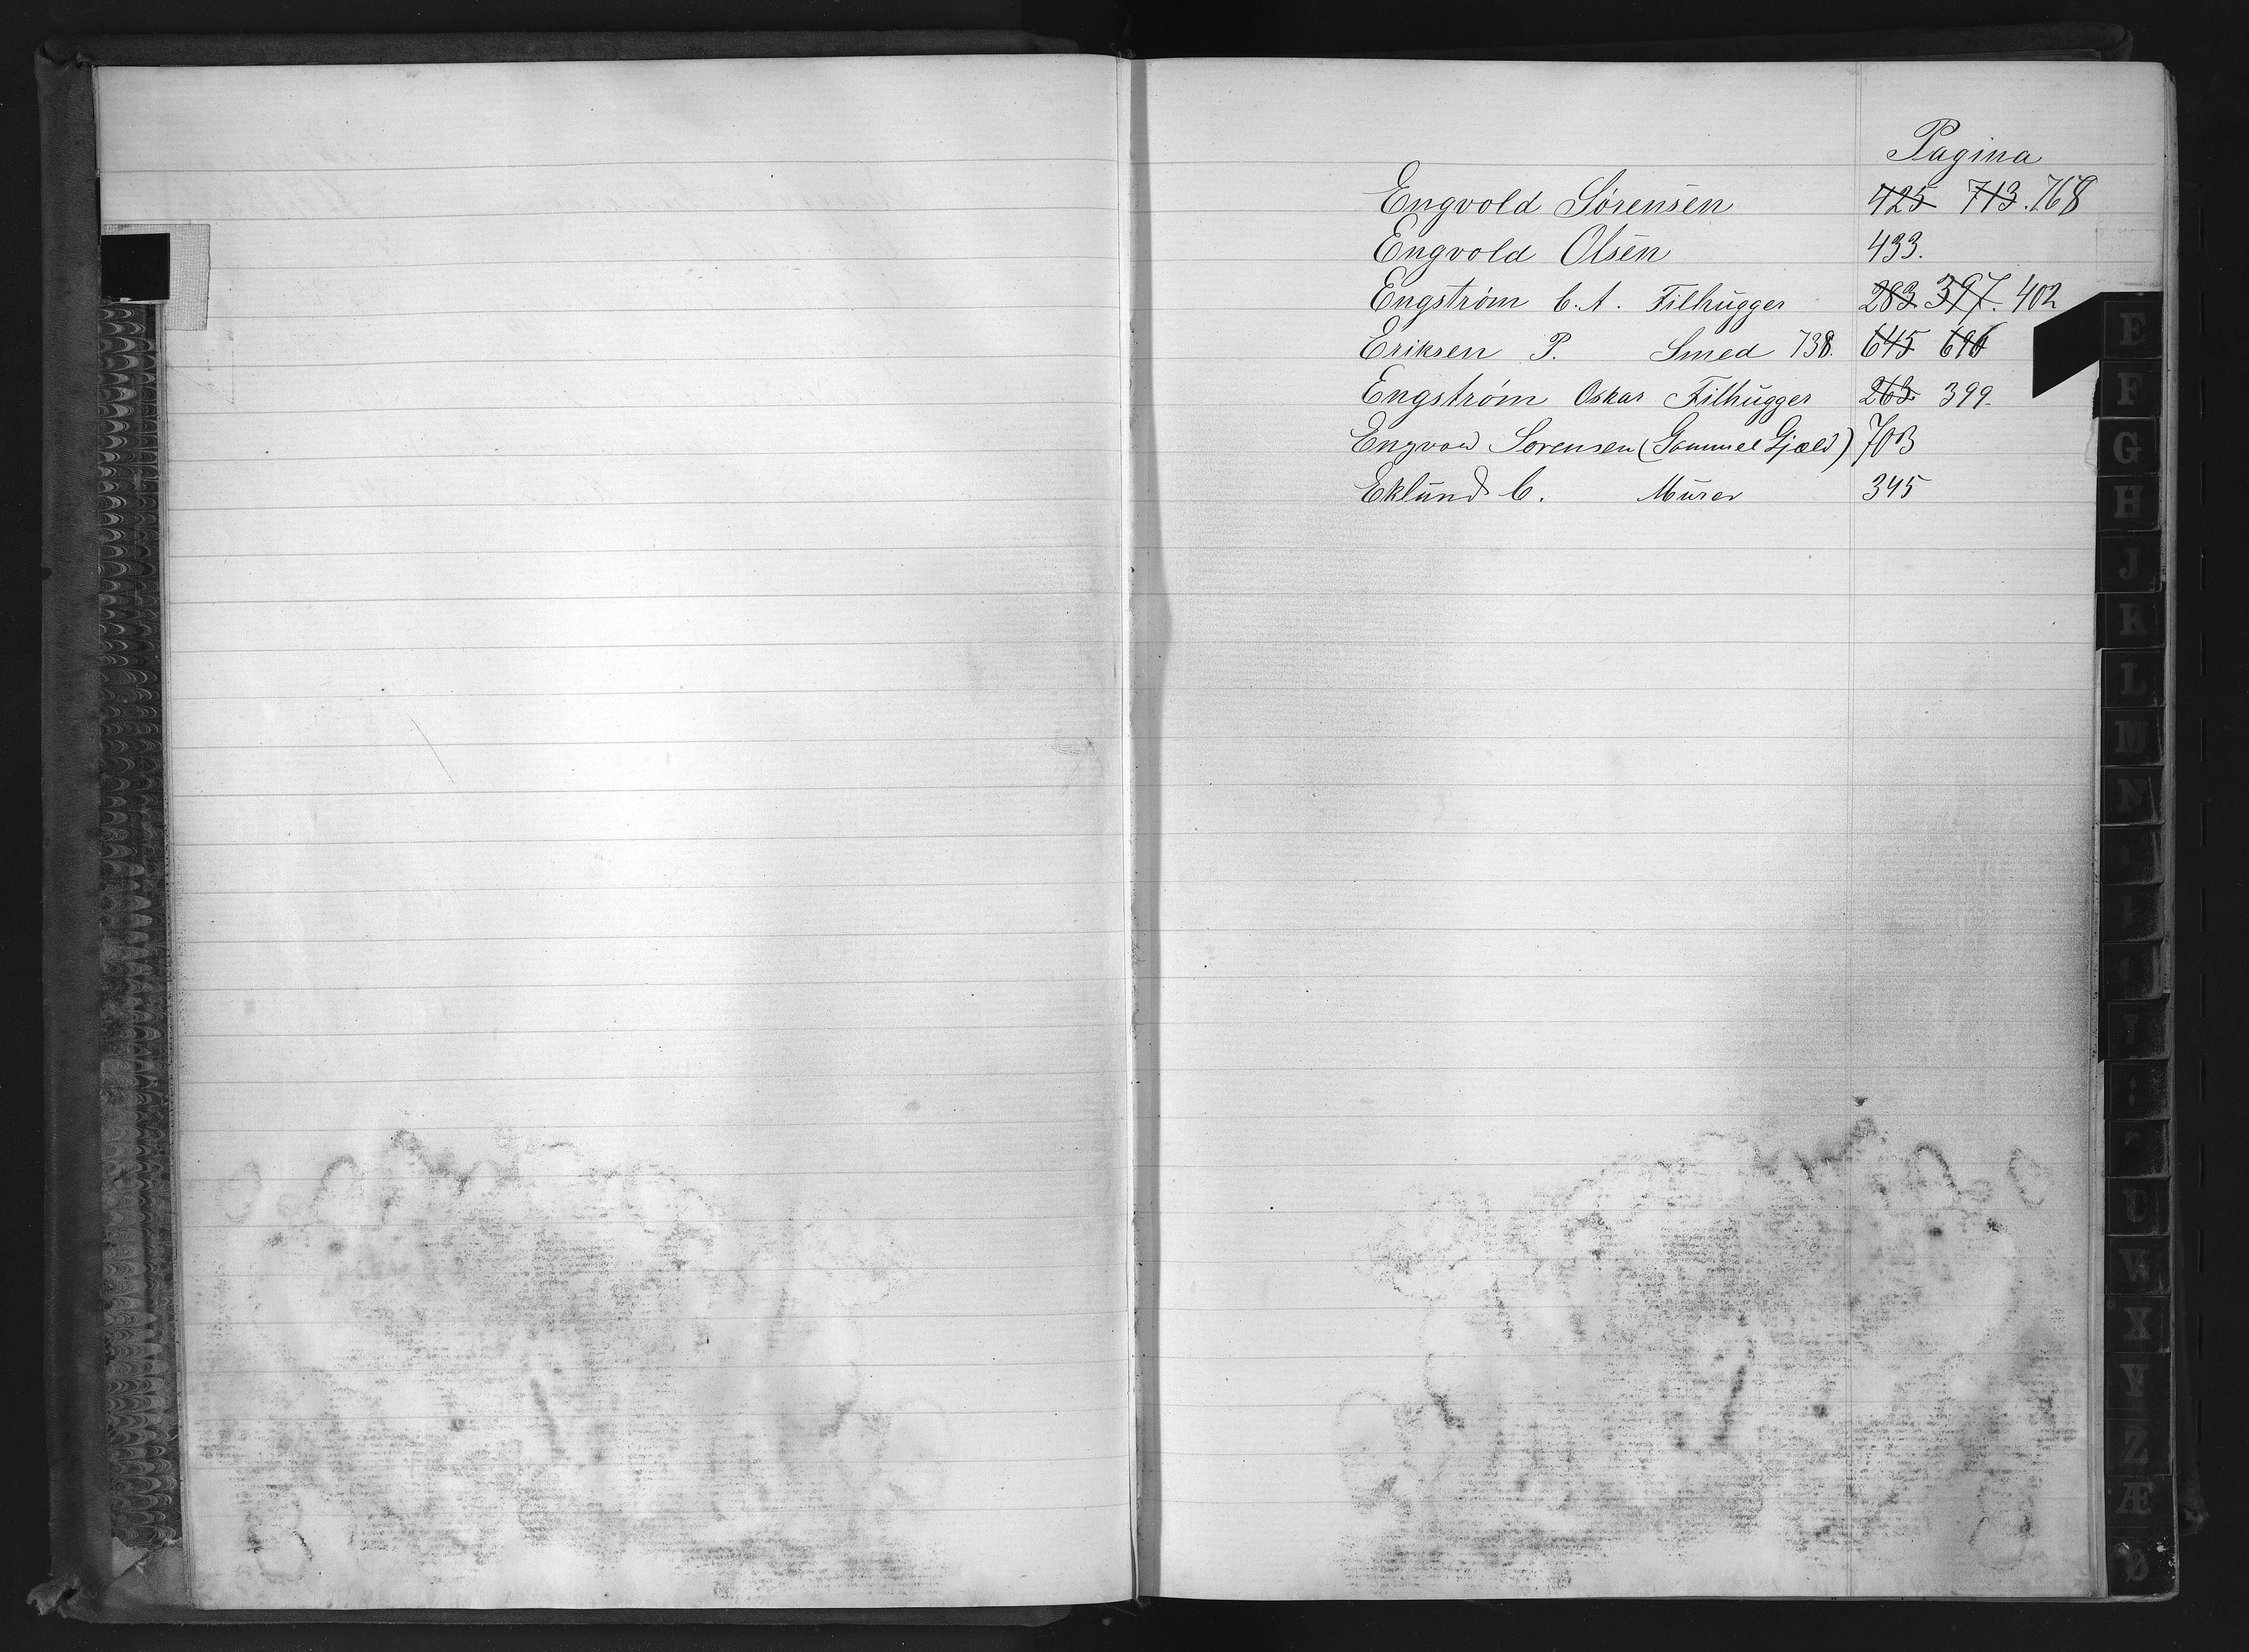 Pagina
Engvold Sørensen 425 713. 768
Engvold Olsen 433.
Engstrøm C. A. Filhugger 283. 397. 402
Eriksen P. Smed 738. 645 696
Engstrøm Oskar Filhugger 263. 399.
Engvold Sorensen (Gammel Gjæld) 703
Eklund C. Murer 345
E
F
G
H
J
K
L
M
N
U
W
X
Y
Z
Æ
Ø